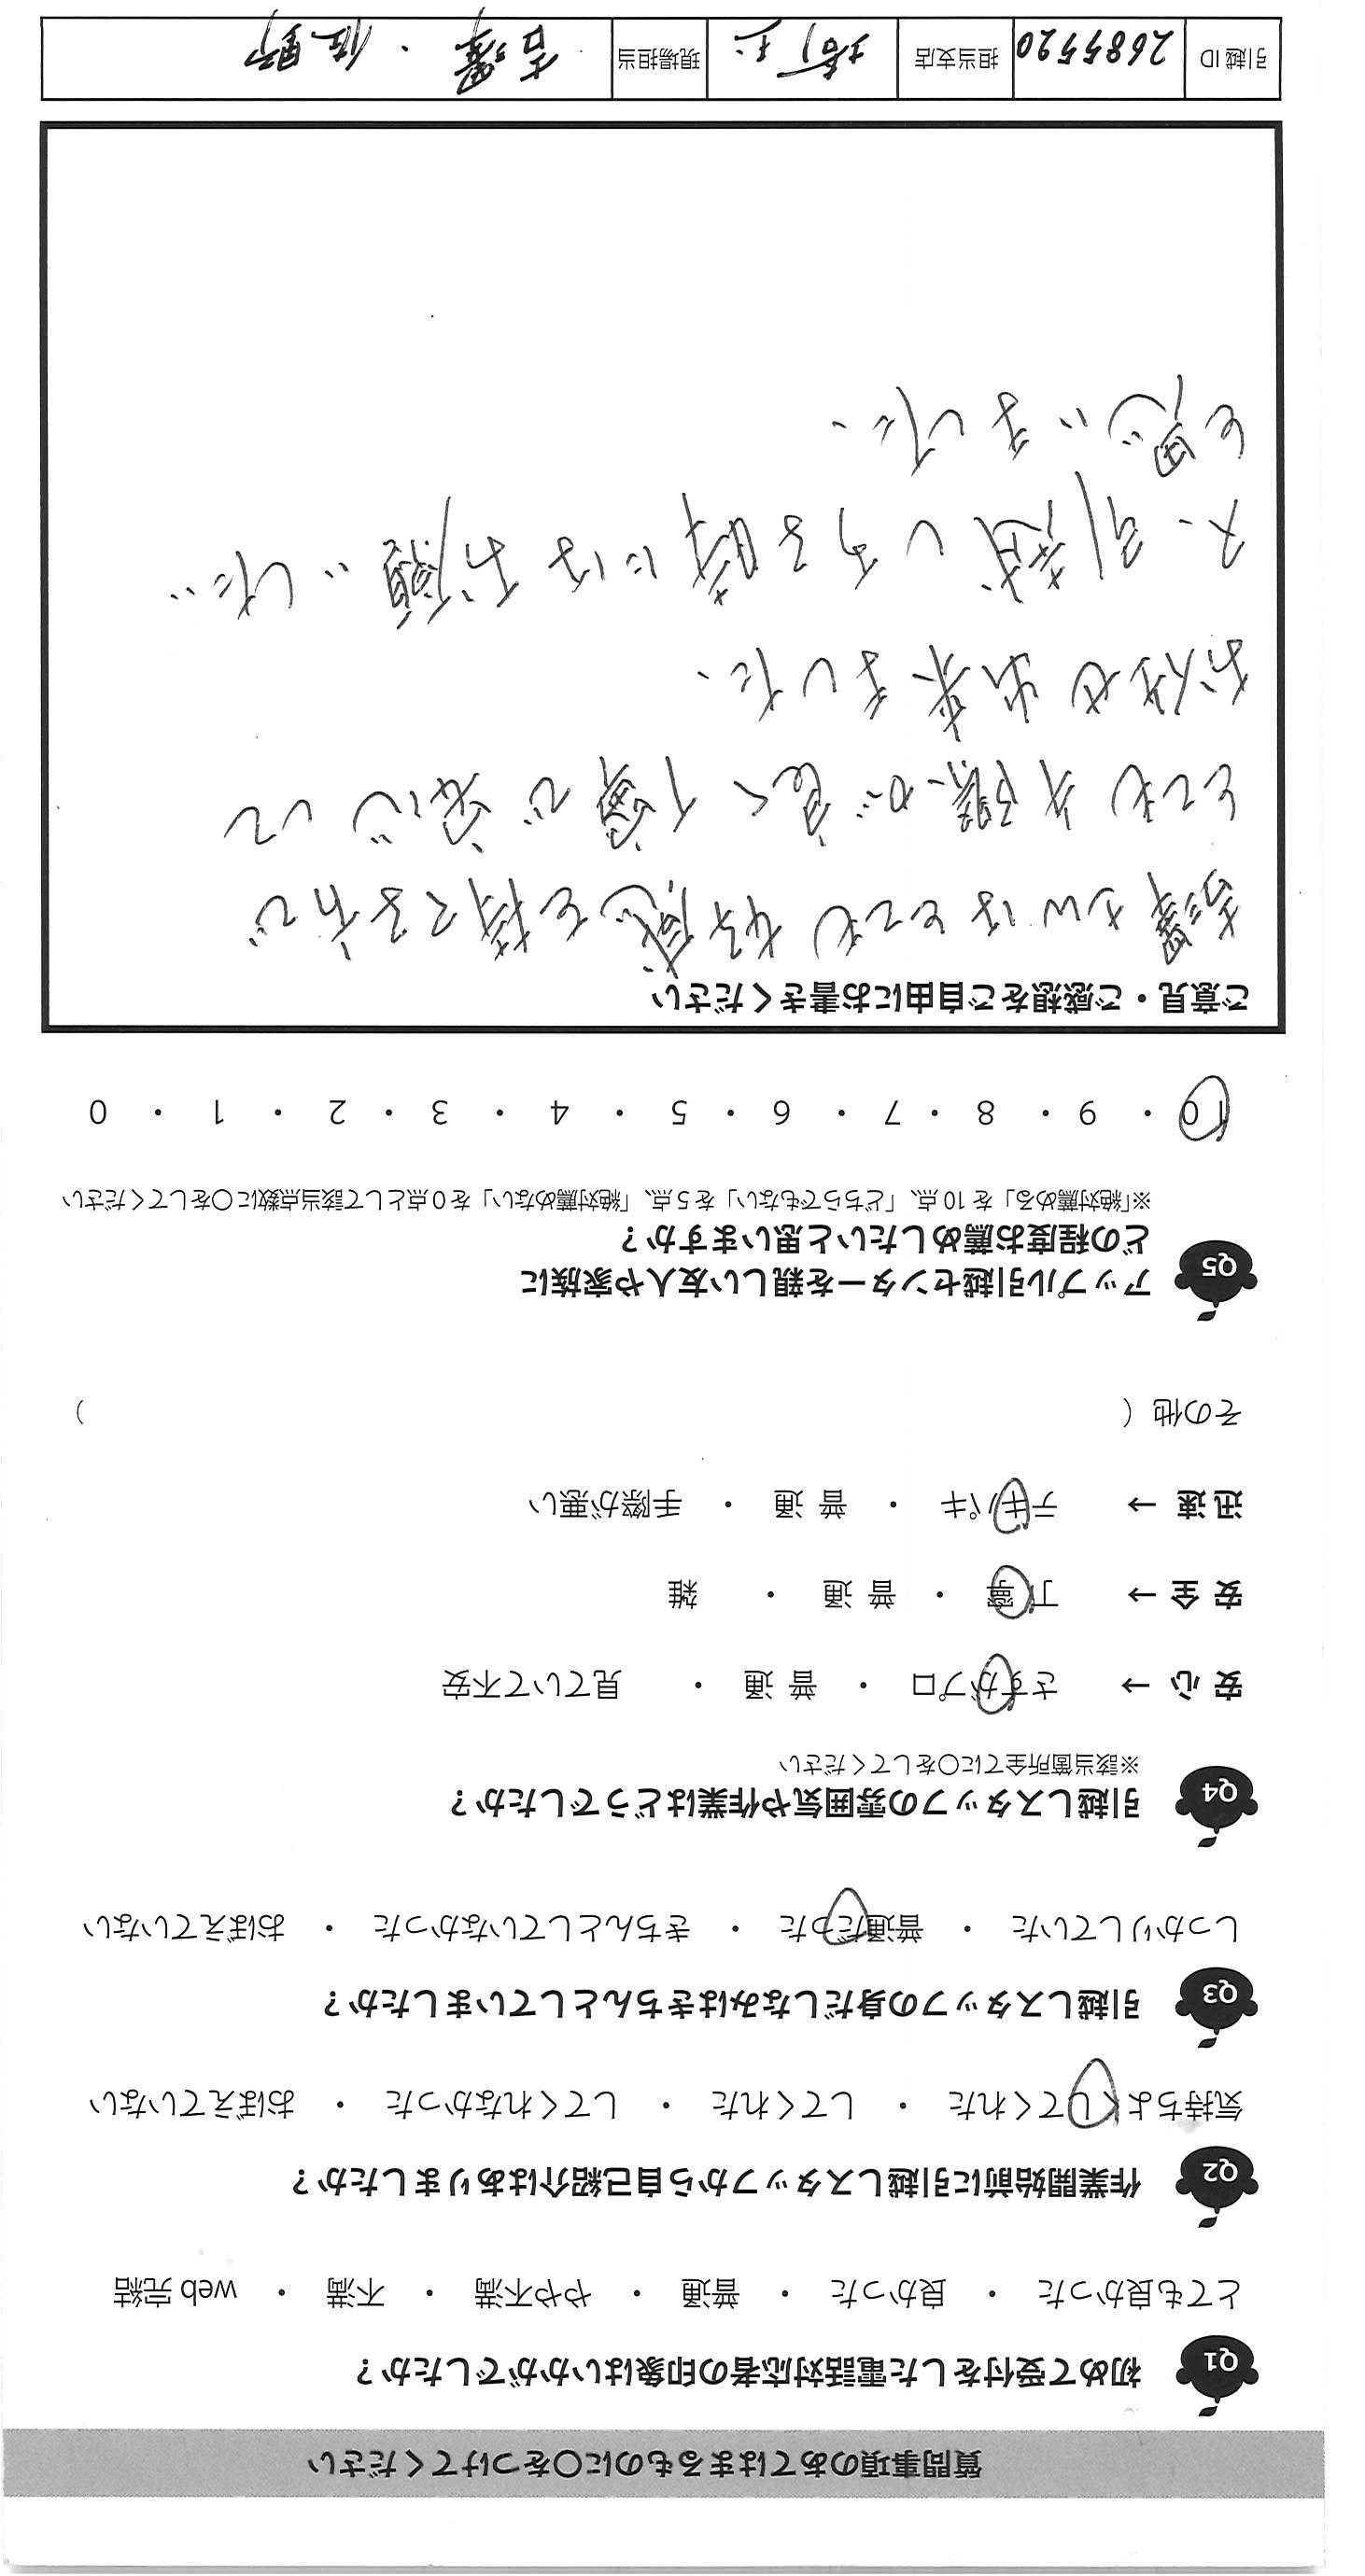 質問事項のあてはまるものに○をつけてください
Q1 初めて受付をした電話対応者の印象はいかがでしたか？
とても良かった ・ 良かった ・ 普通 ・ やや不満 ・ 不満 ・ web 完結
Q2 作業開始前に引越しスタッフから自己紹介はありましたか？
気持ちよくしてくれた ・ してくれた ・ してくれなかった ・ おぼえていない
Q3 引越しスタッフの身だしなみはきちんとしていましたか？
しっかりしていた ・ 普通だった ・ きちんとしていなかった ・ おぼえていない
Q4 引越しスタッフの雰囲気や作業はどうでしたか？
※該当箇所全てに○をしてください
安 心 → さすがプロ ・ 普 通 ・ 見ていて不安
安 全 → 丁 寧 ・ 普 通 ・ 雑
迅 速 → テキパキ ・ 普 通 ・ 手際が悪い
その他（ ）
Q5 アップル引越センターを親しい友人や家族に
どの程度お薦めしたいと思いますか？
※「絶対薦める」を 10 点、「どちらでもない」を 5 点、「絶対薦めない」を 0 点として該当点数に○をしてください
10 ・ 9 ・ 8 ・ 7 ・ 6 ・ 5 ・ 4 ・ 3 ・ 2 ・ 1 ・ 0
ご意見・ご感想をご自由にお書きください
さんはとても好感を持てる方で
とても手際が良く丁寧で安心して
お任せ出来ました。
又、引越しする時にはお願いした
と思いました。
引越 ID 2685520 担当支店 埼玉 現場担当 吉澤 ・ 佐野